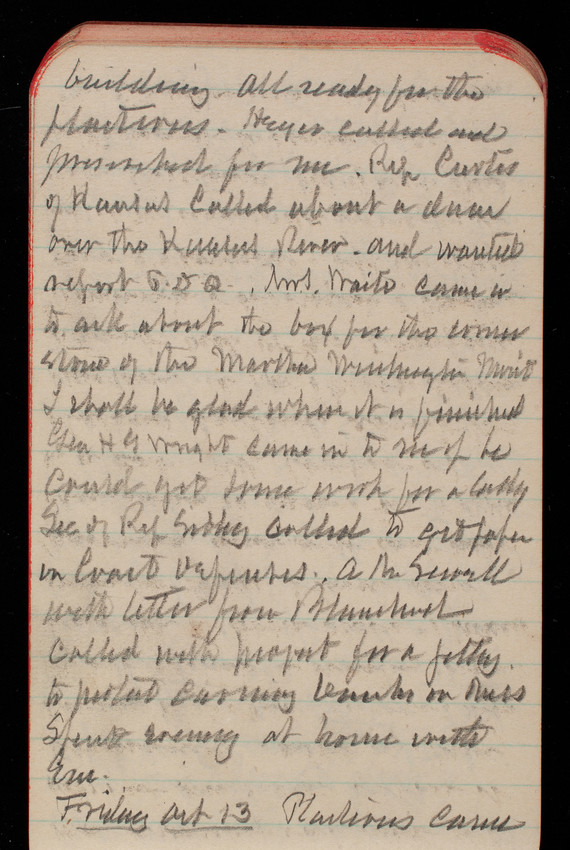 building all ready for the
plasterers. Heger called and
prescribed for me. Rep Curtis
of Kansas called about a dam
over the Kansas River. and wanted
report
. Mrs. Waite came in
to ask about the box for the corner
stone of the Martha Washington Mont
I shall be glad when it is finished
Gen H G Wright came in to see if he
could get some work for a lady
Sec of Rep called to get paper
on Coast Defenses. A Mr Sewall
with letter from
called with project for a jetty
to protect banks on
Spent evening at home with
Em.
Friday Oct 13 Plasterers came